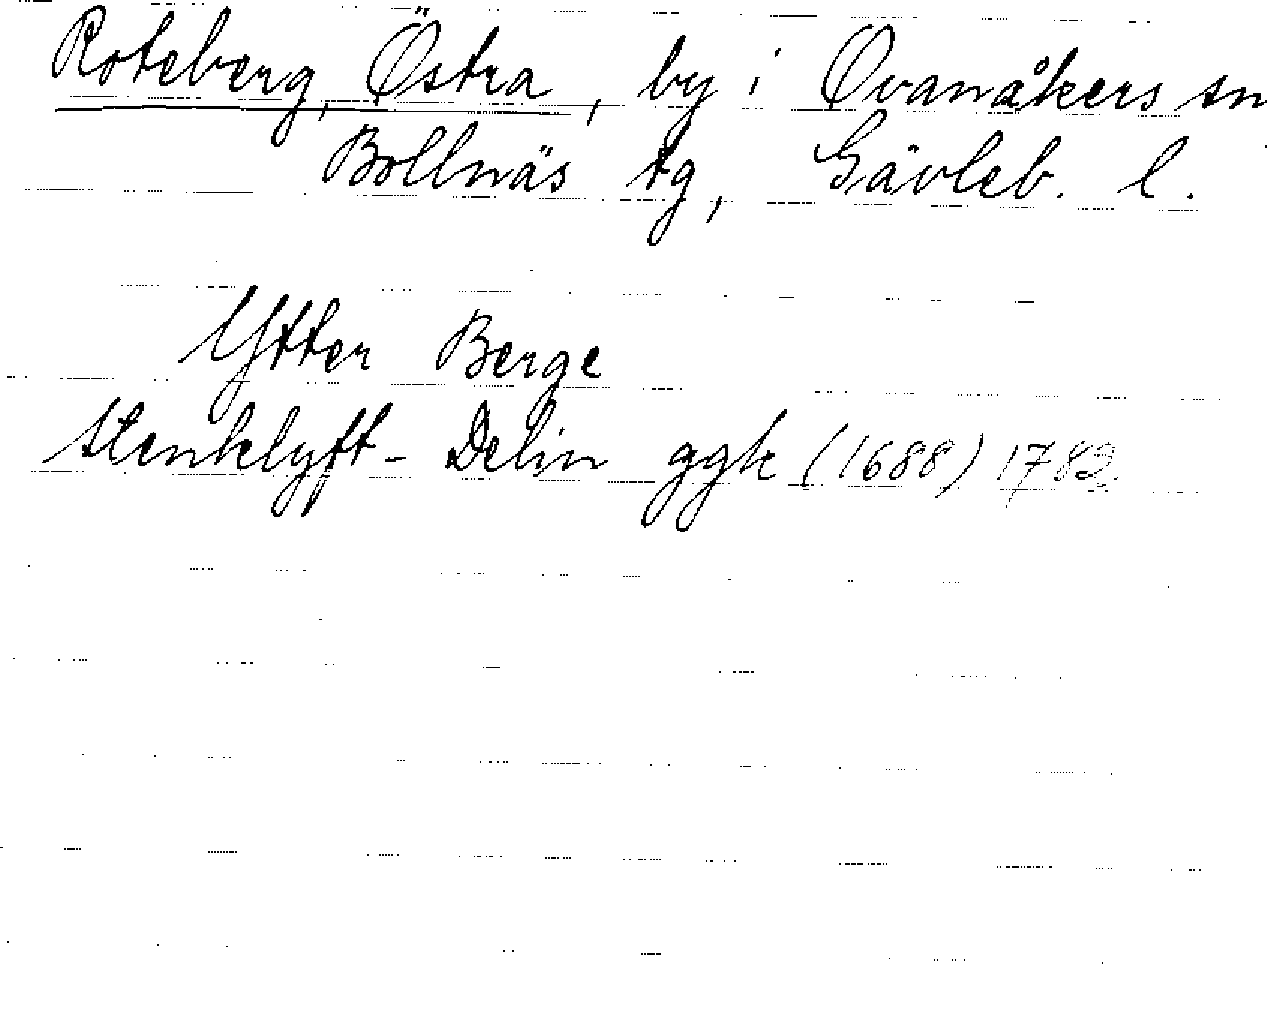 Roteberg, Östra, by i Ovanåkers sn
Bollnäs tg, Gävleb. l.
Ytter Berge
Stenklyft- Delin ggk (1688) 1782